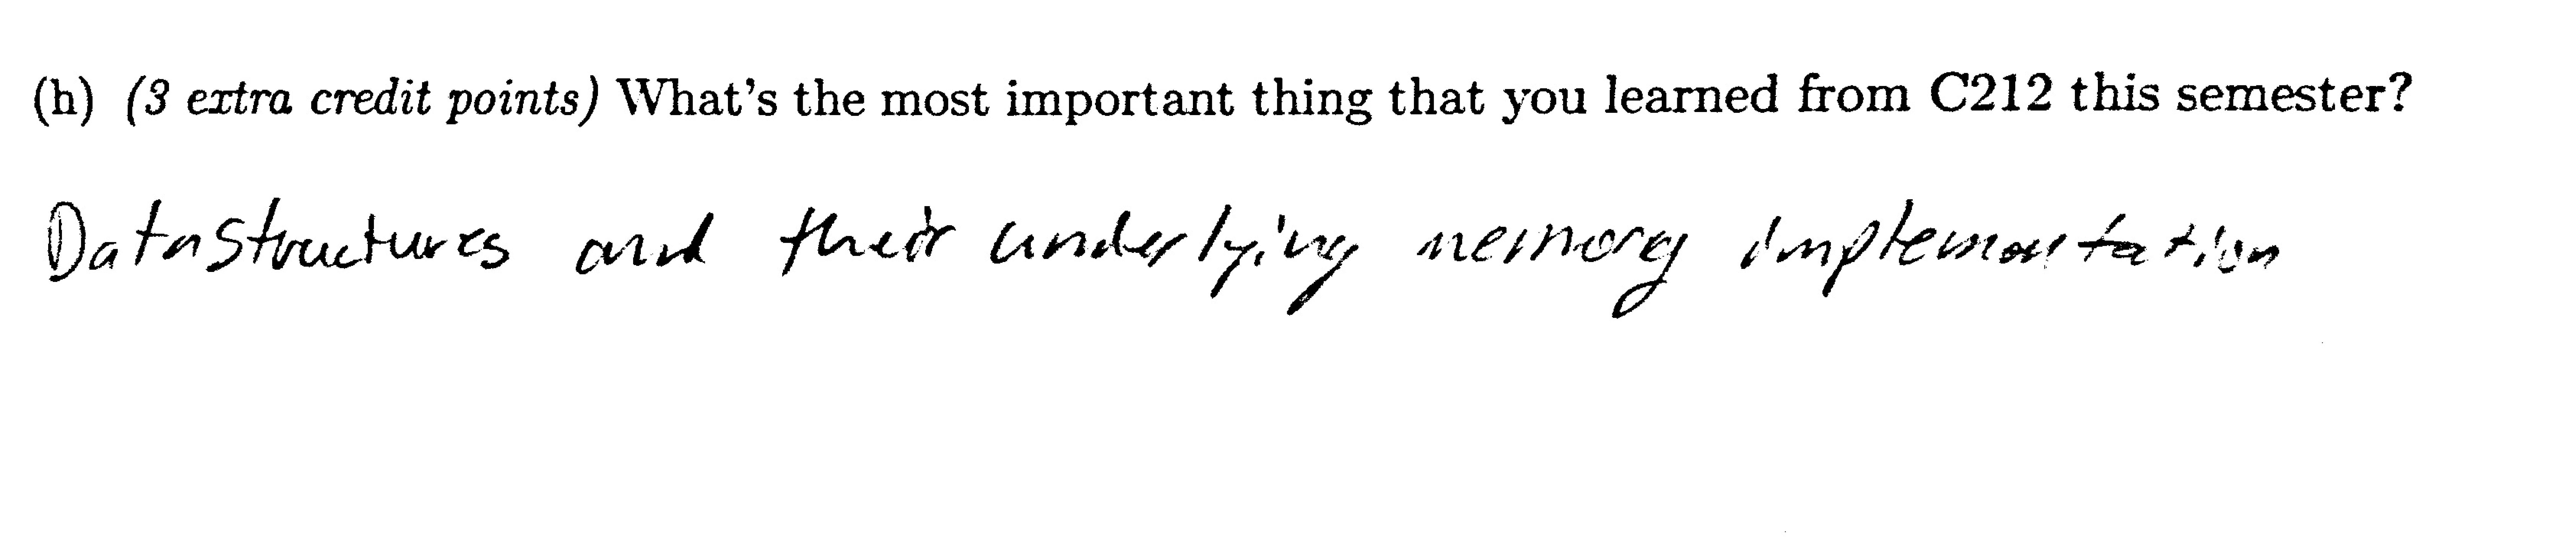 (h) (3 extra credit points) What's the most important thing that you learned from C212 this semester?
Datastructures and their underlying memory implementation